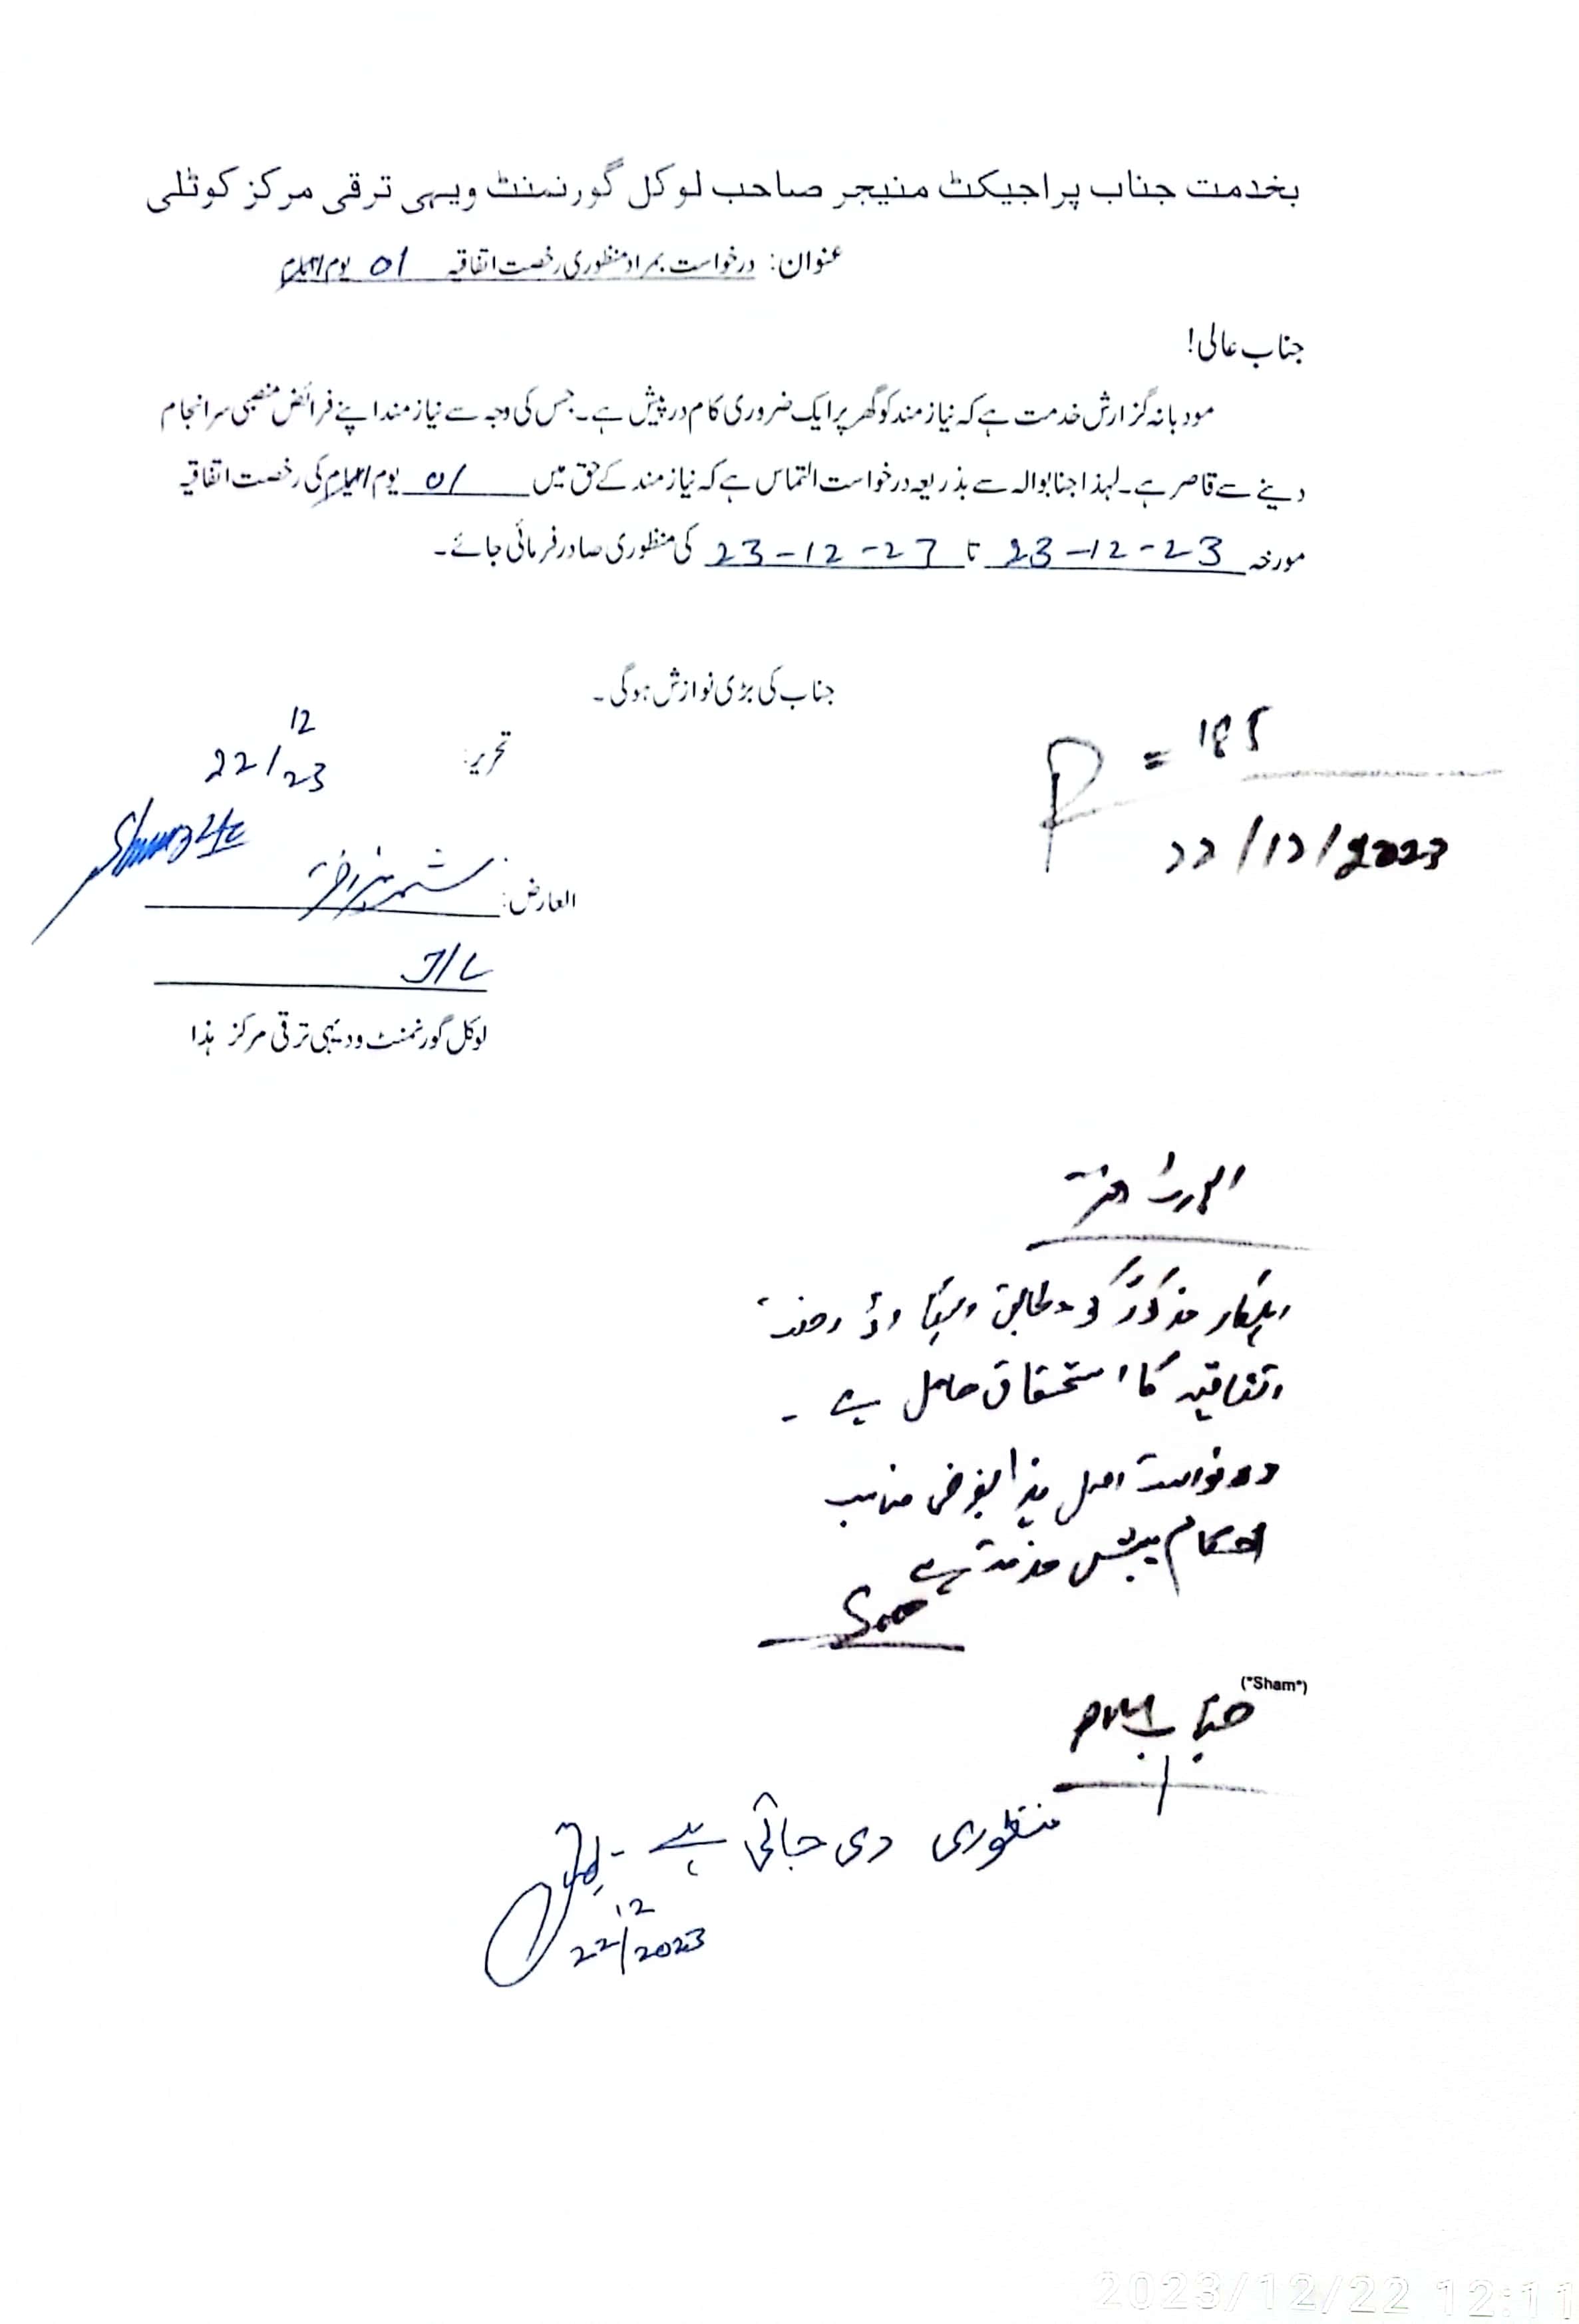 بخدمت جناب پراجیکٹ منیجر صاحب لوکل گورنمنٹ ویہی ترقی مرکز کوٹلی
عنوان: درخواست بمراد منظوری رخصت اتفاقیہ 01 یوم/ایام
جناب عالی!
مودبانہ گزارش خدمت ہے کہ نیازمند کو گھر پر ایک ضروری کام درپیش ہے۔ جس کی وجہ سے نیازمند اپنے فرائض منصبی سرانجام
دینے سے قاصر ہے۔ لہذا جنابوالہ سے بذریعہ درخواست التماس ہے کہ نیازمند کے حق میں 01 یوم/ایام کی رخصت اتفاقیہ
مورخہ 23-12-23 تا 23-12-23 کی منظوری صادر فرمائی جائے۔
جناب کی بڑی نوازش ہوگی۔
تحریر: 22/12/23
R = 185
22/12/2023
العارض: شمریز اختر
J/C
لوکل گورنمنٹ و دیہی ترقی مرکز ہذا
اہلکار مذکور کو مطابق ریکارڈ رخصت
اتفاقیہ کا استحقاق حاصل ہے ۔
درخواست اصل ہذا بغرض مناسب
احکام پیش خدمت ہے
("Sham")
جناب PM
منظوری دی جاتی ہے ۔
22/12/2023
2023/12/22 12:11